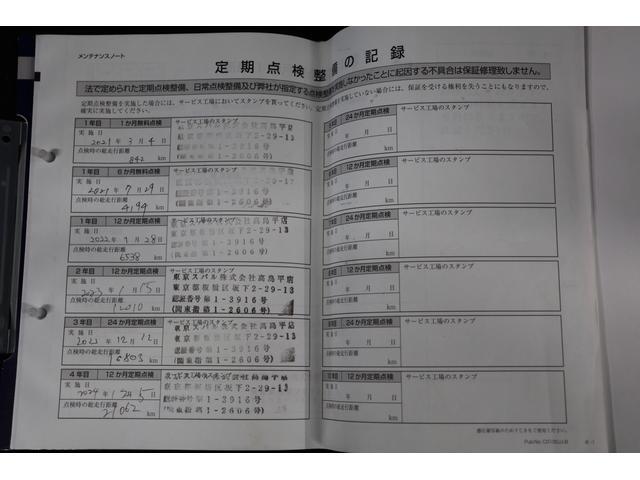 メンテナンスノート
定期点検整備の記録
法で定められた定期点検整備、日常点検整備及び弊社が指定する点検整備を実施しなかったことに起因する不具合は保証修理致しません。
定期点検整備を実施した場合には、サービス工場においてスタンプを貰ってください。定期点検整備を実施していない場合には、保証を受ける権利を失うことにもなりますので、
確実に実施してください。
1年目 1か月無料点検 サービス工場のスタンプ
実施日
2021年3月4日
点検時の総走行距離
842 km
東京スバル株式会社高島平店
東京都板橋区坂下2-29-13
認証番号第1-3916号
(関東指第1-2606号)
1年目 6か月無料点検 サービス工場のスタンプ
実施日
2021年7月29日
点検時の総走行距離
4194 km
東京都板橋区坂下2-29-13
認証番号第1-3916号
(関東指第1-2606号)
1年目 12か月定期点検 サービス工場のスタンプ
実施日
2022年1月28日
点検時の総走行距離
6538 km
東京都板橋区坂下2-29-13
認証番号第1-3916号
(関東指第1-2606号)
2年目 12か月定期点検 サービス工場のスタンプ
実施日
2023年1月15日
点検時の総走行距離
12010 km
東京スバル株式会社高島平店
東京都板橋区坂下2-29-13
認証番号第1-3916号
(関東指第1-2606号)
3年目 24か月定期点検 サービス工場のスタンプ
実施日
年12月12日
点検時の総走行距離
16803 km
東京スバル株式会社高島平店
東京都板橋区坂下2-29-13
認証番号第1-3916号
(関東指第1-2606号)
4年目 12か月定期点検 サービス工場のスタンプ
実施日
2024年
点検時の総走行距離
21062 km
東京都板橋区坂下2-29-13
認証番号第1-3916号
(関東指第1-2606号)
24か月定期点検 サービス工場のスタンプ
年 月 日
km
12か月定期点検 サービス工場のスタンプ
年 月 日
km
24か月定期点検 サービス工場のスタンプ
年 月 日
km
12か月定期点検 サービス工場のスタンプ
年 月 日
km
24か月定期点検 サービス工場のスタンプ
年 月 日
km
12か月定期点検 サービス工場のスタンプ
年 月 日
km